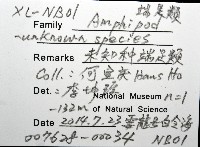 XL-NB01 端足類
Family Amphipod
-unknown species
Remarks 未知种端足類
Coll.: 何宣庆 Hans Ho
Det.: 李坤瑄
National Museum n=1
-132m of Natural Science
Date 2014.7.23
007628-00034 NB01